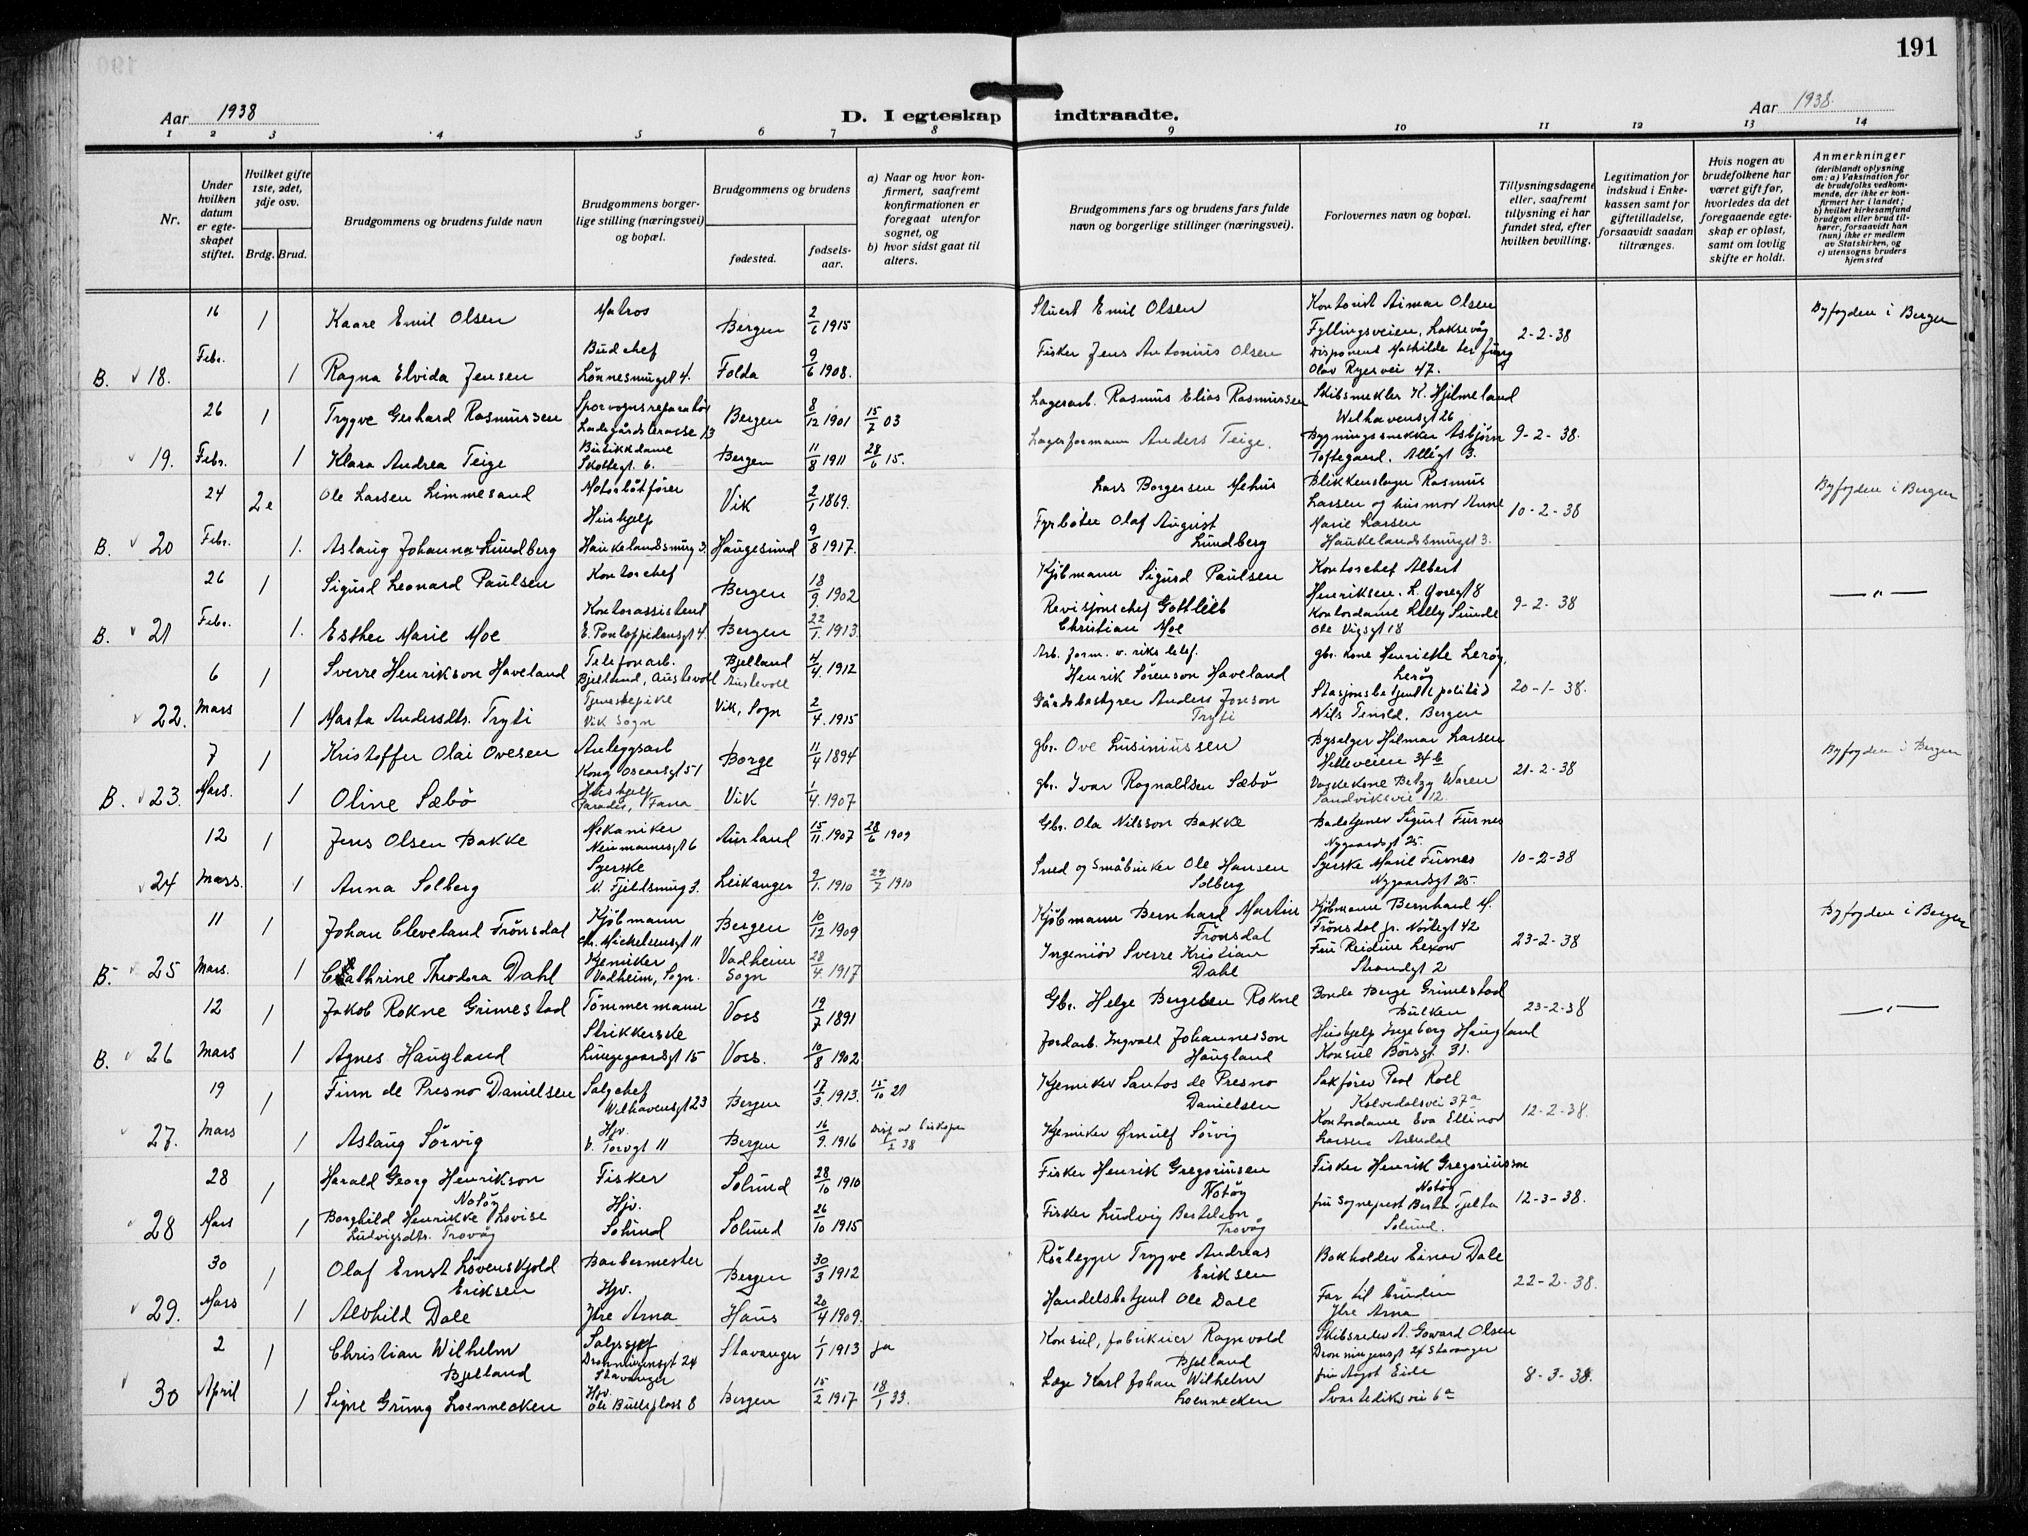 191
Aar 1938
D. I egteskap indtraadte.
Aar 1938.
1 2 3 4 5 6 7 8 9 10 11 12 13 14
Nr.
Under hvilken datum er egteskapet stiftet.
Hvilket gifte 1ste, 2det, 3dje osv.
Brdg. Brud.
Brudgommens og brudens fulde navn
Brudgommens borgerlige stilling (næringsvei) og bopæl.
Brudgommens og brudens
fødested.
fødselsaar.
a) Naar og hvor konfirmert, saafremt konfirmationen er foregaat utenfor sognet, og
b) hvor sidst gaat til alters.
Brudgommens fars og brudens fars fulde navn og borgerlige stillinger (næringsvei).
Forlovernes navn og bopæl.
Tillysningsdagene eller, saafremt tillysning ei har fundet sted, efter hvilken bevilling.
Legitimation for indskud i Enkekassen samt for giftetilladelse, forsaavidt saadan tiltrænges.
Hvis nogen av brudefolkene har været gift før, hvorledes da det foregaaende egteskap er opløst, samt om lovlig skifte er holdt.
Anmerkninger
(deriblandt oplysning om: a) Vaksination for de brudefolks vedkommende, der ikke er konfirmert her i landet; b) hvilket kirkesamfund brudgom eller brud tilhører, forsaavidt han (hun) ikke er medlem av Statskirken, og c) utensogns bruders hjemsted
16 1 Kaare Emil Olsen Matros Bergen 2/6 1915 Stuert Emil Olsen Kontorist Aimar Olsen
Fyllingsveien, Laksevåg 2-2-38 Byfogden i Bergen
B. 18. Febr. 1 Ragna Elvida Jensen Budchef Lønnesmuget 4. Folda 9/6 1908. Fisker Jens Antonius Olsen Disponent Mathilde
Olav Ryesvei 47.
26 1 Trygve Gerhard Rasmussen Sporvognsreparatør Ladegårdsterasse 13 Bergen 8/12 1901 15/2 03 Lagerarb. Rasmus Elias Rasmussen Skibsmekler K. Hjelmeland
Welhavensgt 26 9-2-38.
19. Febr. 1 Klara Andrea Teige Butikkdame Skottegt. 6. Bergen 11/8 1911 28/6 15. Lagerformann Anders Teige. Bygningssnekker Asbjørn
Toftegaard, Allégt 3.
24 2e Ole Larsen Limmesand Motorbåtfører Vik 2/1 1869. Lars Borgersen Mehus Blikkenslager Rasmus
Larsen og husmor Anne 10-2-38 Byfogden i Bergen
B. 20 Febr. 1. Aslaug Johanna Lundberg Hushjelp Haukelandsmug 3. Haugesund 9/8 1917. Fyrbøter Olaf August Lundberg Marie Larsen
Haukelandsmuget 3.
26 1 Sigurd Leonard Paulsen Kontorchef Bergen 18/9. 1902 Kjøbmann Sigurd Paulsen Kontorchef Albert
Henriksen. 9-2-38 —"—
B. 21 Febr. 1. Esther Marie Moe Kontorassistent E. Pontoppidansgt 4. Bergen 22/1. 1913. Revisjonschef Gottlieb Christian Moe Kontordame Lilly Sunde
Ole Vigsgt 18
6 1 Sverre Henrikson Haveland Telefonarb. Bjelland, Austevoll Bjelland Austevoll 4/4. 1912 Arb. form. v. riks telef. Henrik Sørenson Haveland gbr. kone Henrikke Lerøy,
Lerøy 20-1-38.
22. Mars 1 Marta Andersdtr. Tryti Tjenestepike Vik Sogn Vik, Sogn 2/4. 1915 Gårdsbestyrer Anders Jonson Tryti Stasjonsbetjent (politi)
Nils Bergen
7 1 Kristoffer Olai Ovesen Anleggsarb Kong Oscarsgt 51 Borge 11/4 1894 gbr. Ove Lusiniussen Byselger Hilmar Larsen
Helleveien 34b 21-2-38 Byfogden i Bergen
B. 23. Mars. 1 Oline Sæbø Hushjelp Paradis, Fana Vik 1/4. 1907 gbr. Ivar Ragnaldsen Sæbø Vaskekone Betzy Waren
Sandviksvei 12.
12 1 Jens Olsen Bakke Mekaniker Neumannsgt 6 Aurland 15/11. 1907 28/6 1909 Gbr. Ola Nilsson Bakke Badetjener Sigurd Furnes
Nygaardsgt 25. 10-2-38
24 Mars. 1 Anna Solberg Syerske N. Fjeldsmug 3. Leikanger 9/1. 1910 29/7 1910 Smed og småbruker Ole Hansen Solberg Syerske Marie Furnes
Nygaardsgt 25.
11 1 Johan Cleveland Frønsdal Kjøbmann Chr. Michelsensgt 11 Bergen 10/12 1909 Kjøbmann Bernhard Martin Frønsdal Kjøbmann Bernhard M.
Frønsdal jr. Nøstegt 42 23-2-38 Byfogden i Bergen
B. 25 Mars. 1 Cathrine Theodora Dahl Kjemiker Vadheim, Sogn. Vadheim Sogn 28/4. 1917 Ingeniør Sverre Kristian Dahl Fru Reidun Lexow
Strandgt 2
12 1 Jakob Rokne Grimestad Tømmermann Voss 19/7 1891 Gbr. Helge Bergesen Rokne Bonde Berge Grimestad
Bulken 23-2-38 —"—
B. 26 Mars 1 Agnes Haugland Strikkerske Lungegaardsgt 15 Voss. 10/8 1902 Jordarb. Ingvald Johannesson Haugland Hushjelp Ingeborg Haugland
Konsul Børsgt. 31.
19 1 Finn de Presno Danielsen Salgchef Welhavensgt 23 Bergen 17/3. 1913. 15/10 27 Kjemiker Santos de Presno Danielsen Sakfører Paal Roll
Kalvedalsvei 37a 12-2-38.
27. Mars 1 Aslaug Sørvig Hjv. V. Torvgt 11 Bergen 16/9. 1916 Disp av biskopen 1/2 38 Kjemiker Ørnulf Sørvig Kontordame Eva Ellinor
Larsen Arendal
28 1 Harald Georg Henrikson Notøy Fisker Solund 28/10 1910 Fisker Henrik Gregoriusen Notøy Fisker Henrik Gregoriusson
Notøy 12-3-38.
28 Mars 1 Borghild Henrikke Lovise Ludvigsdtr. Trovåg Hjv. Solund Solund 26/10 1915 Fisker Ludvig Bertelsen Trovåg fru Sogneprest Berta Tjelta
Solund.
30 1 Olaf Ernst Løvenskjold Eriksen Barbermester Bergen 30/3 1912 Rørlegger Trygve Andreas Eriksen Bokholder Einar Dale
22-2-38.
29. Mars 1 Alvhild Dale Hjv. Ytre Arna Haus 20/4 1909. Handelsbetjent Ole Dale Far til bruden
Ytre Arna
2 1 Christian Wilhelm Bjelland Salgssjef Dronningensgt 24 Stavanger Stavanger 1/1 1913 ja Konsul, fabrikeier Ragnvald Bjelland Skibsreder A. Goward Olsen
Dronningensgt 24 Stavanger 8-3-38.
30 April 1 Signe Grung Loennecken Hjv. Ole Bullsplass 8 Bergen 15/2 1917 18/1 33. Læge Karl Johan Wilhelm Loennecken fru Aagot Eide
Svartediksvei 6a